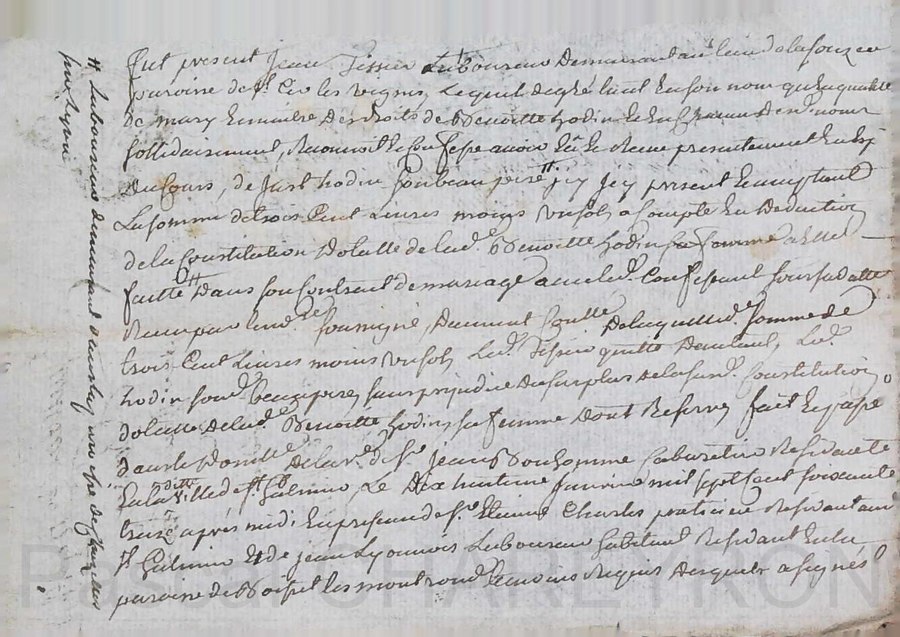 fut present Jean Tissier Laboureur demeurant au lieu de la fouze en
paroisse de St Cir les vignes, Lequel de gré tant en son nom qu'en qualité
de mary et maitre des droits de Benoitte hodin et en chacun des noms
sollidairement, Reconnoit et Confesse avoir Eü et Receu presentement
du cours, de Just hodin son beau pere # icy present et acceptant
La somme de trois Cent Livres moins un sol, a compte et en deduction
de la Constitution dotalle de lad. Benoitte hodin sa femme a elle
faitte dans son Contrat de mariage avec led. Confessant sous sa datte
Receu par le no.re Soussigné, dument Controllé de laquelle d. somme de
trois Cent Livres moins un sol, Led. Tissier quitte d'autant, Led.
hodin sond. beaupere, sans prejudice du surplus de la susd. Constitution
dotalle de lad. Benoitte hodin sa femme dont Reserve, fait et passé
dans le domicille de Sr. Jean Bonhomme Cabaretier Residant
En la ditte Ville de St Galmier, Le dix huitieme Janvier mil sept cent soixante
treize après midi En presence de Sr. Etienne Charles praticien Residant aud.
St Galmier et de Jean Lyonnois Laboureur habitant Residant en la
paroisse de Boisset les montrond Temoins Requis Lesquels a signés
# Laboureur demeurant paroisse de